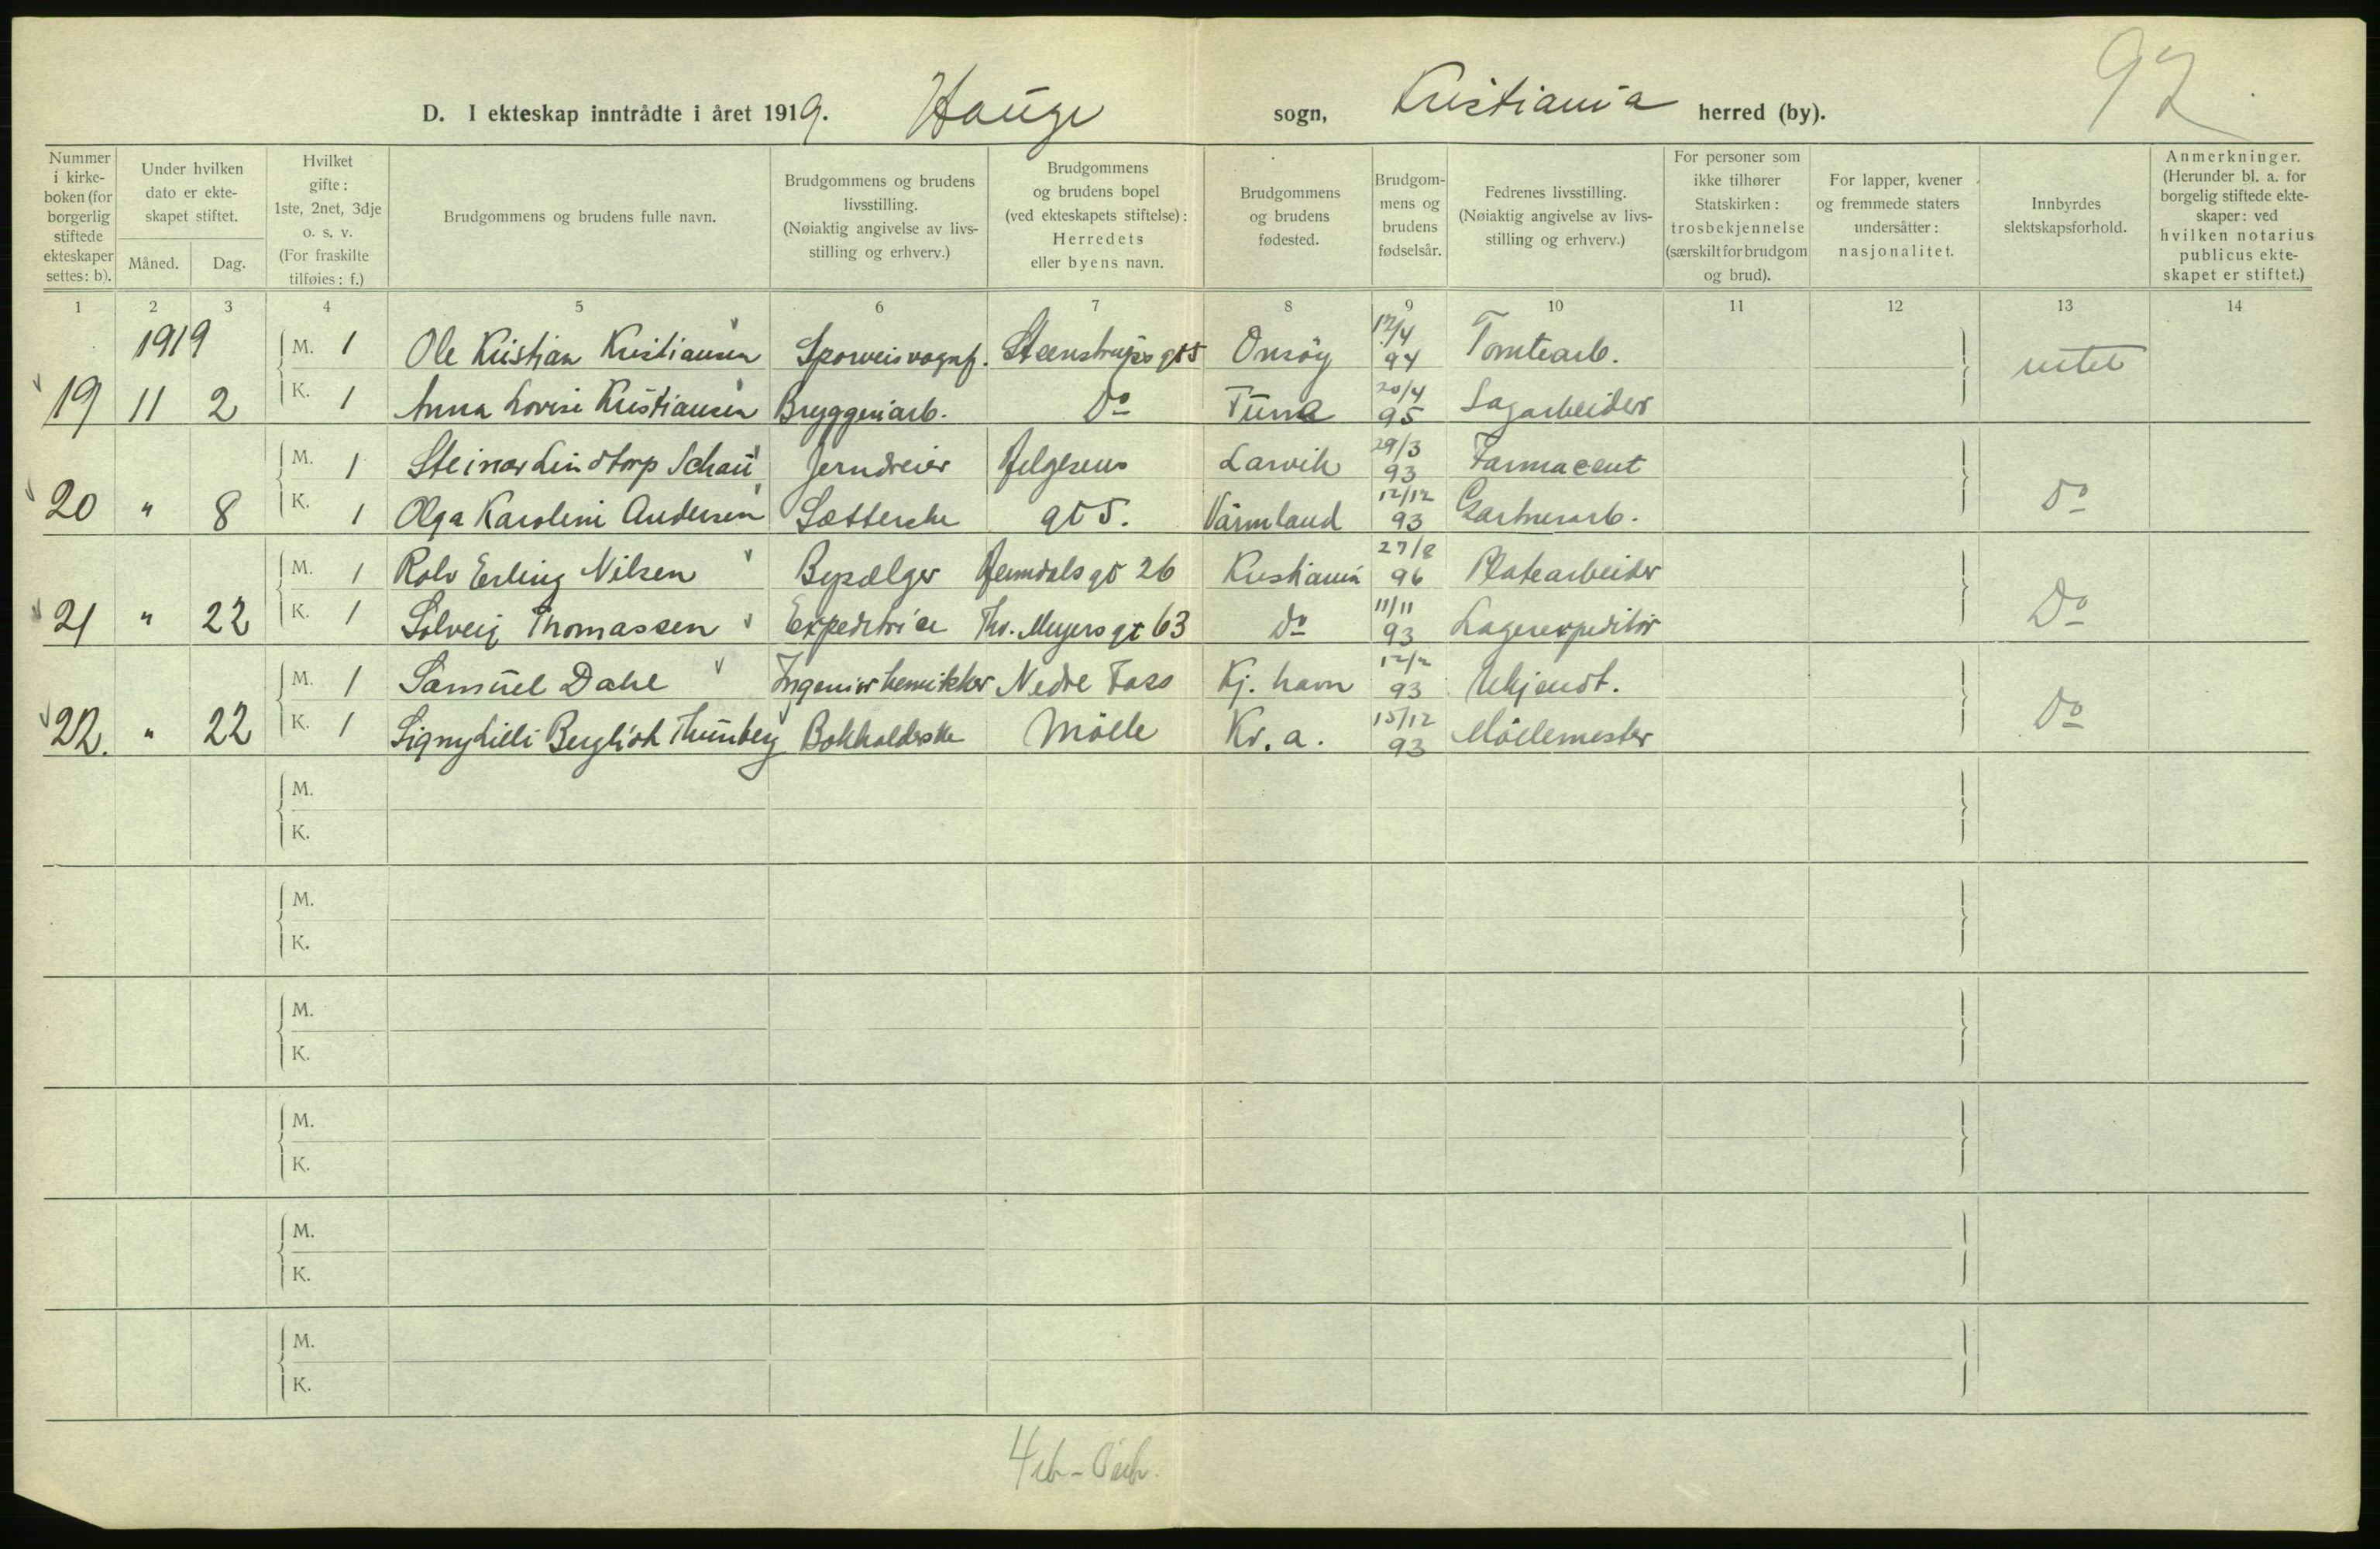 92
D. I ekteskap inntrådte i året 1919. Hauge sogn, Kristiania herred (by).
Nummer i kirke-boken (for borgerlig stiftede ekteskaper settes: b).
Under hvilken dato er ekte-skapet stiftet.
Måned. Dag.
Hvilket gifte: 1ste, 2net, 3dje o. s. v. (For fraskilte tilføies: f.)
Brudgommens og brudens fulle navn.
Brudgommens og brudens livsstilling. (Nøiaktig angivelse av livs-stilling og erhverv.)
Brudgommens og brudens bopel (ved ekteskapets stiftelse): Herredets eller byens navn.
Brudgommens og brudens fødested.
Brudgom-mens og brudens fødselsår.
Fedrenes livsstilling. (Nøiaktig angivelse av livs-stilling og erhverv.)
For personer som ikke tilhører Statskirken: trosbekjennelse (særskilt for brudgom og brud).
For lapper, kvener og fremmede staters undersåtter: nasjonalitet.
Innbyrdes slektskapsforhold.
Anmerkninger. (Herunder bl. a. for borgelig stiftede ekte-skaper: ved hvilken notarius publicus ekte-skapet er stiftet.)
1 2 3 4 5 6 7 8 9 10 11 12 13 14
1919 M. 1 Ole Kristian Kristiansen Sporveisvognf. Steenstrups gt 5 Onsöy 17/4 94 Tomtearb. intet
19 11 2 K. 1 Anna Lovise Kristiansen Bryggeriarb. Do Tune 20/4 95 Sagarbeider
M. 1 Steinar Lindtorp Schau Jerndreier Helgesens Larvik 29/3 93 Farmaceut
20 " 8 K. 1 Olga Karoline Andersen Sætterske gt 5. Värmland 12/12 93 Gartnerarb. Do
M. 1 Rolv Erling Nilsen Bysælger Heimdals gt 26 Kristiania 27/8 96 Platearbeider
21 " 22 K. 1 Solveig Thomassen Expeditrice Th. Meyers gt 63 Do 11/11 93 Lagerexpeditör Do
M. 1 Samuel Dahl Ingeniör kemikker Nedre Foss Kj. havn 12/2 93 Ukjendt.
22. " 22 K. 1 Signy Lilli Bergliot Thunberg Bokholderske Mölle Kr. a. 15/12 93 Möllemester Do
M.
K.
M.
K.
M.
K.
M.
K.
M.
K.
M.
K.